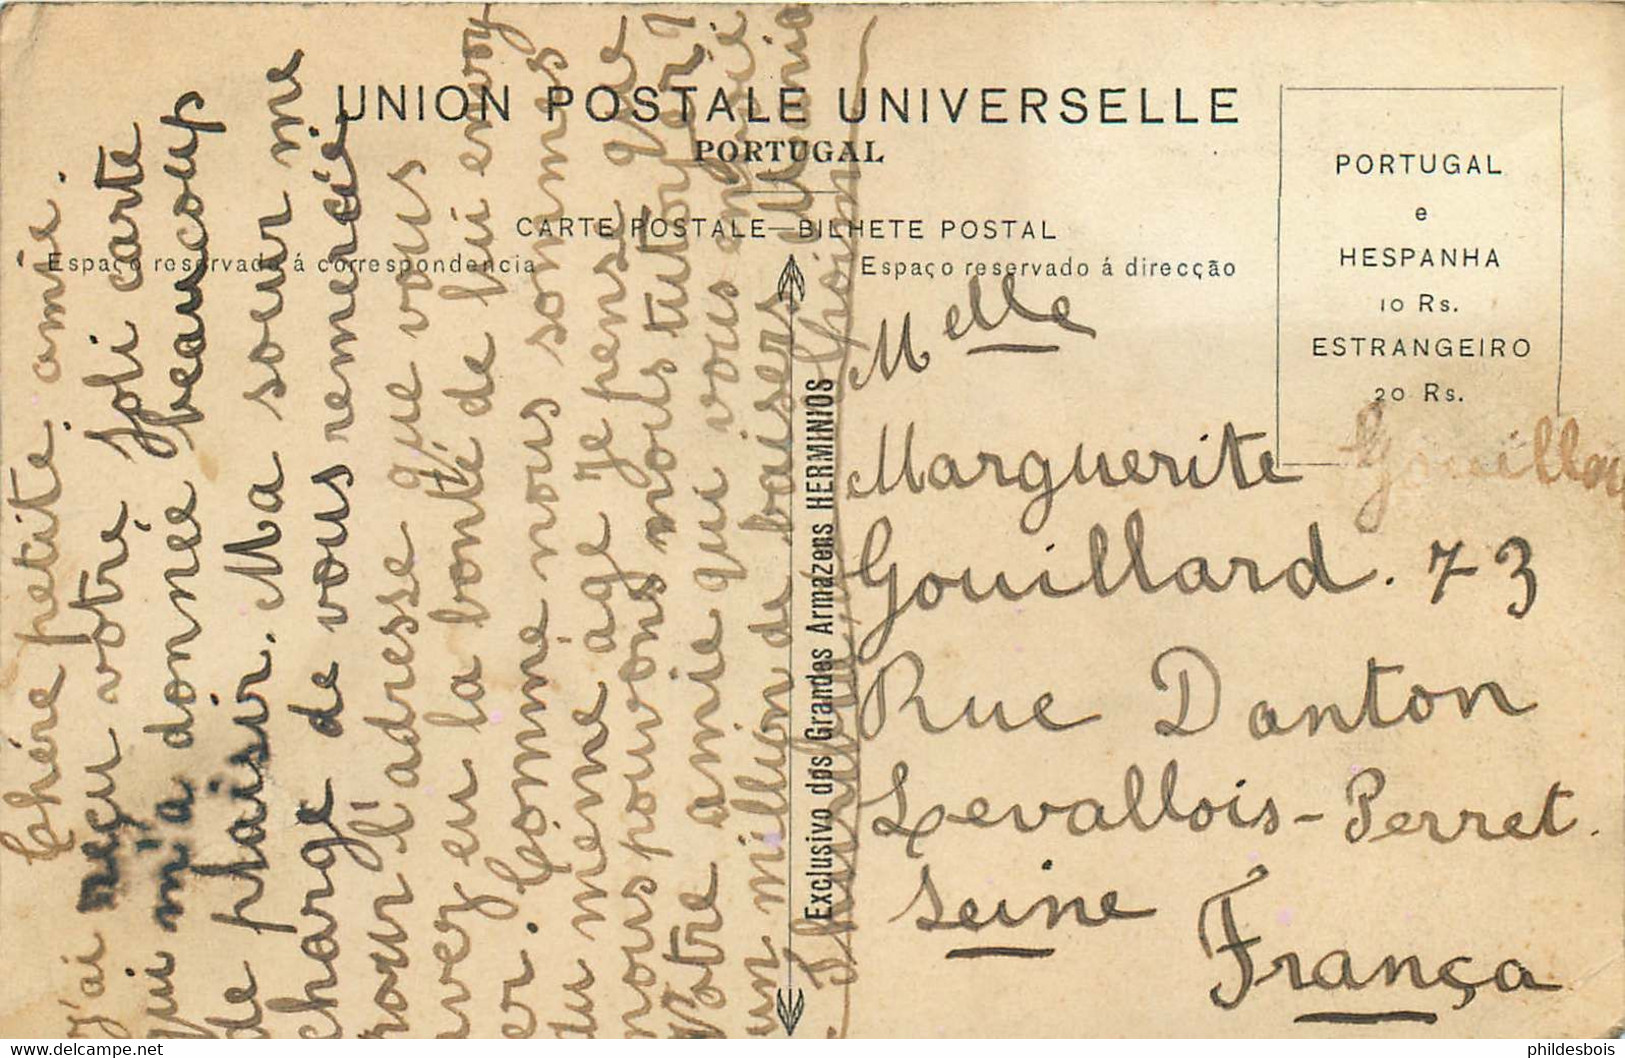 UNION POSTALE UNIVERSELLE
PORTUGAL
CARTE POSTALE—BILHETE POSTAL
Espaço reservado á correspondencia
Espaço reservado á direcção
PORTUGAL
e
HESPANHA
10 Rs.
ESTRANGEIRO
20 Rs.
Exclusivo dos Grandes Armazens HERMINIOS
Chére petite amie.
J'ai reçu votre joli carte
qui m'a donné beaucoup
de plaisir. Ma soeur me
charge de vous remercié
pour l'adresse que vous
avez eu la bonté de lui envoy
er. Comme nous sommes
du mene âge je pense que
nous pouvons nous tutoyer?
Votre amie qui vous envoie
un million de baisers
Melle
Marguerite
Gouillard. 73
Rue Danton
Levallois-Perret.
Seine
França
phildesbois